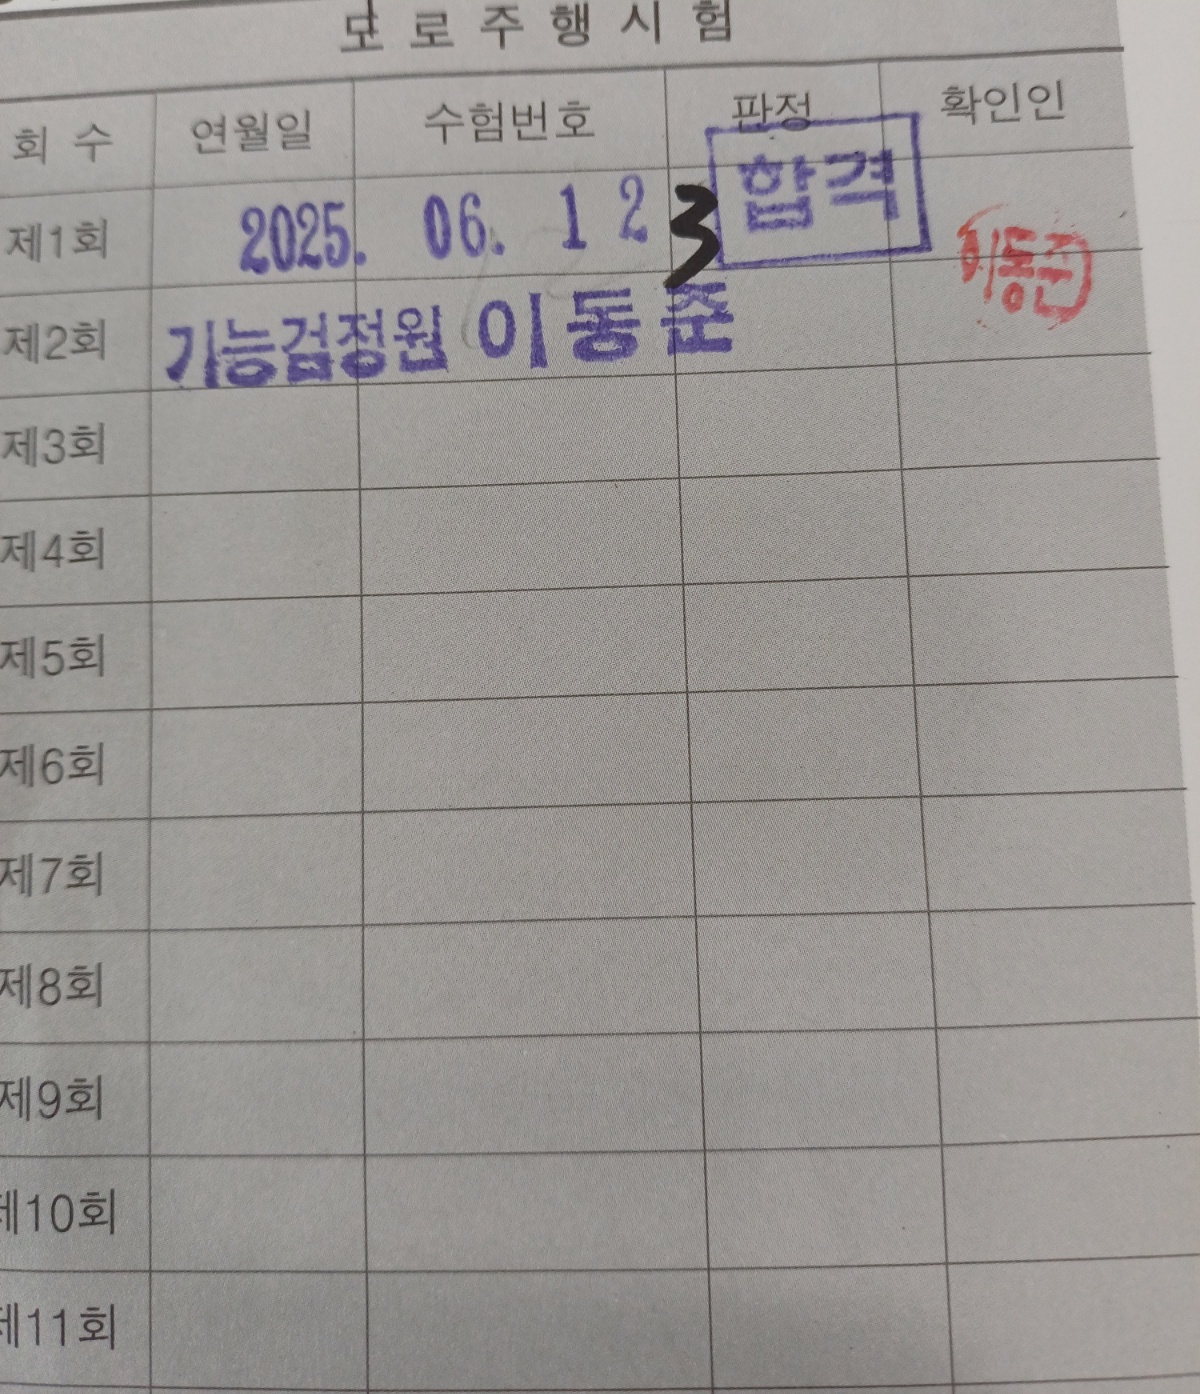 도로주행시험
회 수 연월일 수험번호 판정 확인인
제1회 2025. 06. 1 2 3 합격 이동준
제2회 기능검정원 이동준
제3회
제4회
제5회
제6회
제7회
제8회
제9회
제10회
제11회